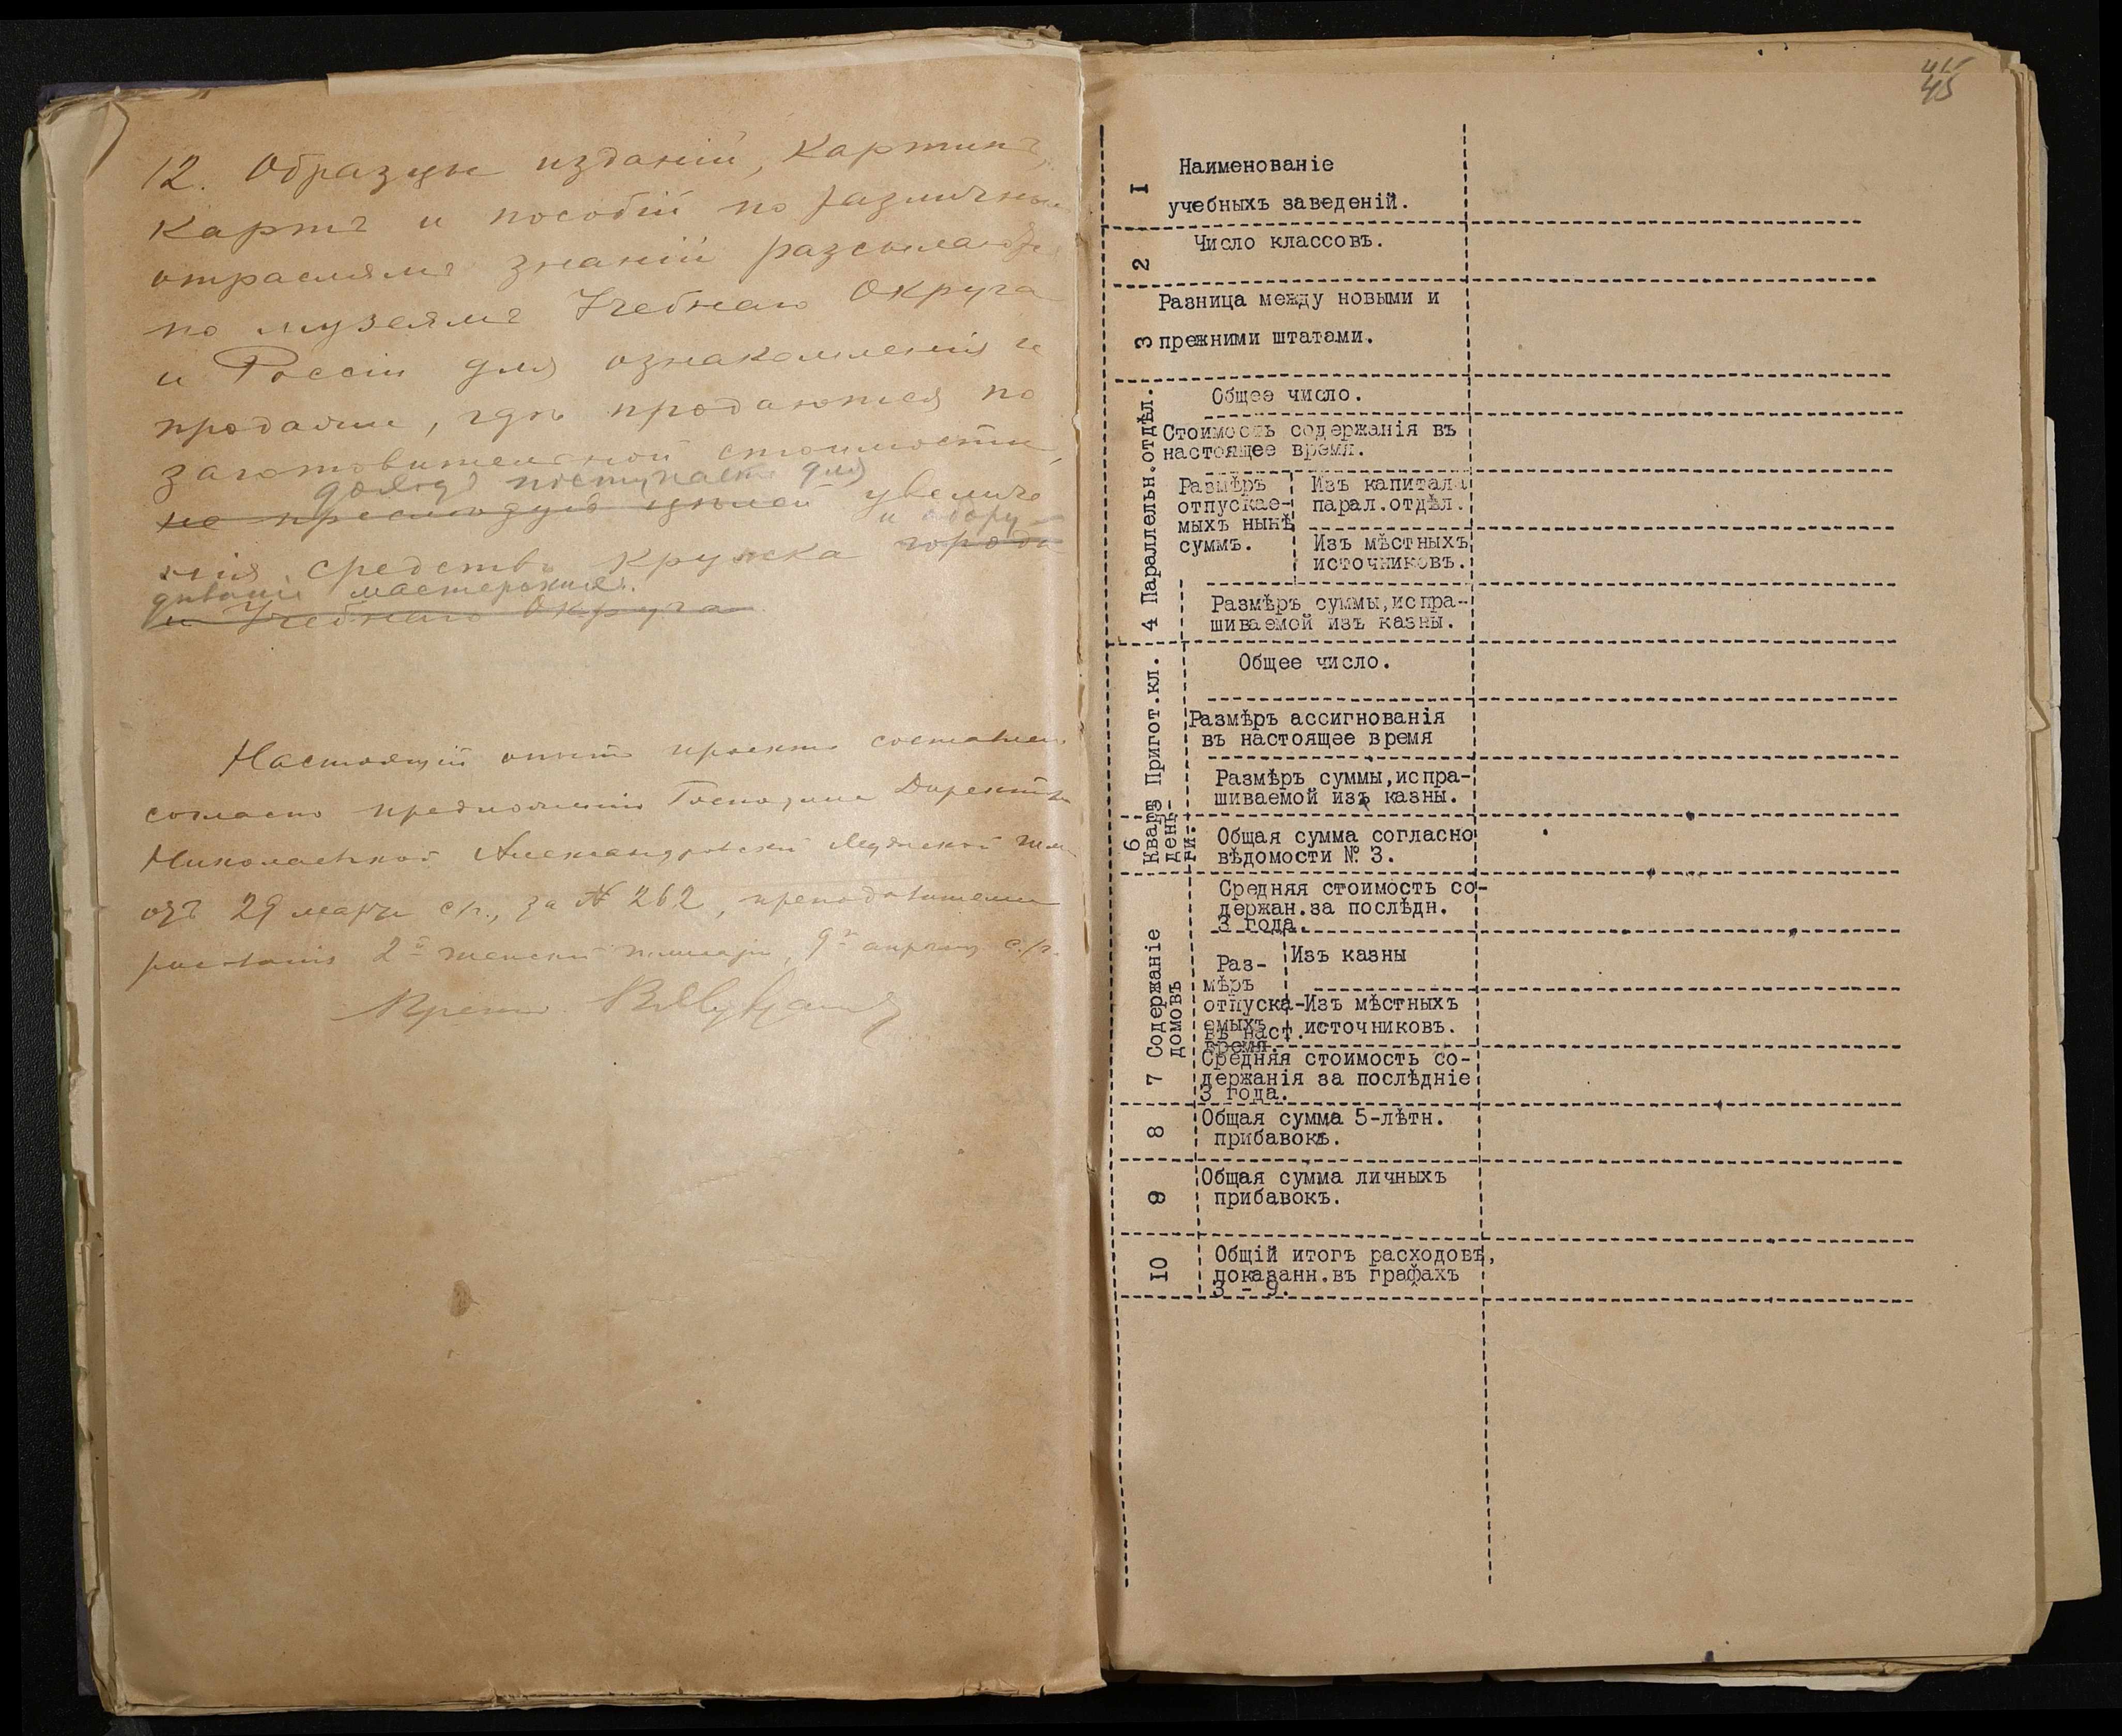 12. Образцы изданій, картинъ,
картъ и пособій по различнымъ
отраслямъ знаній разсылаются
по музеямъ Учебнаго Округа
и Россіи для ознакомленія и
продажи, гдѣ продаются по
заготовительной стоимости,
доходъ поступаетъ для
не преслѣдуя цѣлей увеличе
и обору
нія средствъ кружка
дованія мастерскихъ.
и Учебнаго Округа
Настоящій опытъ проекта составленъ
согласно предложенію Господина Директора
Николаевской Александровской женской гим
отъ 29 марта с/г., за № 262, преподавателемъ
рисованія 2й женской гимназіи, 9го апрѣля с./г.
45
45
1 Наименованіе
учебныхъ заведеній.
2 Число классовъ.
3 Разница между новыми и
прежними штатами.
4 Параллельн.отдѣл.
Общее число.
Стоимость содержанія въ
настоящее время.
Размѣръ
отпускае-
мыхъ нынѣ
суммъ.
Изъ капитала
парал.отдѣл.
Изъ мѣстныхъ
источниковъ.
Размѣръ суммы,испра-
шиваемой изъ казны.
Пригот.кл.
Общее число.
Размѣръ ассигнованія
въ настоящее время
Размѣръ суммы,испра-
шиваемой изъ казны.
6
Кварт
день-
ги.
Общая сумма согласно
вѣдомости № 3.
7 Содержаніе
домовъ
Средняя стоимость со-
держан.за послѣдн.
3 года.
Раз-
мѣръ
отпуска-
емыхъ
въ наст.
время.
Изъ казны
Изъ мѣстныхъ
источниковъ.
Средняя стоимость со-
держанія за послѣдніе
3 года.
8 Общая сумма 5-лѣтн.
прибавокъ.
9 Общая сумма личныхъ
прибавокъ.
10 Общій итогъ расходовъ,
показанн.въ графахъ
3 - 9.